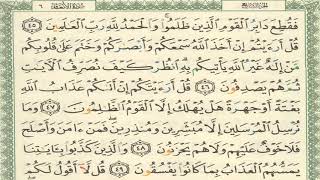 فَقُطِعَ دَابِرُ الْقَوْمِ الَّذِينَ ظَلَمُوا وَالْحَمْدُ لِلَّهِ رَبِّ الْعَالَمِينَ ٤٥
قُلْ أَرَأَيْتُمْ إِنْ أَخَذَ اللَّهُ سَمْعَكُمْ وَأَبْصَارَكُمْ وَخَتَمَ عَلَىٰ قُلُوبِكُمْ
مَنْ إِلَٰهٌ غَيْرُ اللَّهِ يَأْتِيكُمْ بِهِ انْظُرْ كَيْفَ نُصَرِّفُ الْآيَاتِ
ثُمَّ هُمْ يَصْدِفُونَ ٤٦ قُلْ أَرَأَيْتَكُمْ إِنْ أَتَاكُمْ عَذَابُ اللَّهِ
بَغْتَةً أَوْ جَهْرَةً هَلْ يُهْلَكُ إِلَّا الْقَوْمُ الظَّالِمُونَ ٤٧ وَمَا
نُرْسِلُ الْمُرْسَلِينَ إِلَّا مُبَشِّرِينَ وَمُنْذِرِينَ فَمَنْ آمَنَ وَأَصْلَحَ
فَلَا خَوْفٌ عَلَيْهِمْ وَلَا هُمْ يَحْزَنُونَ ٤٨ وَالَّذِينَ كَذَّبُوا بِآيَاتِنَا
يَمَسُّهُمُ الْعَذَابُ بِمَا كَانُوا يَفْسُقُونَ ٤٩ قُلْ لَا أَقُولُ لَكُمْ